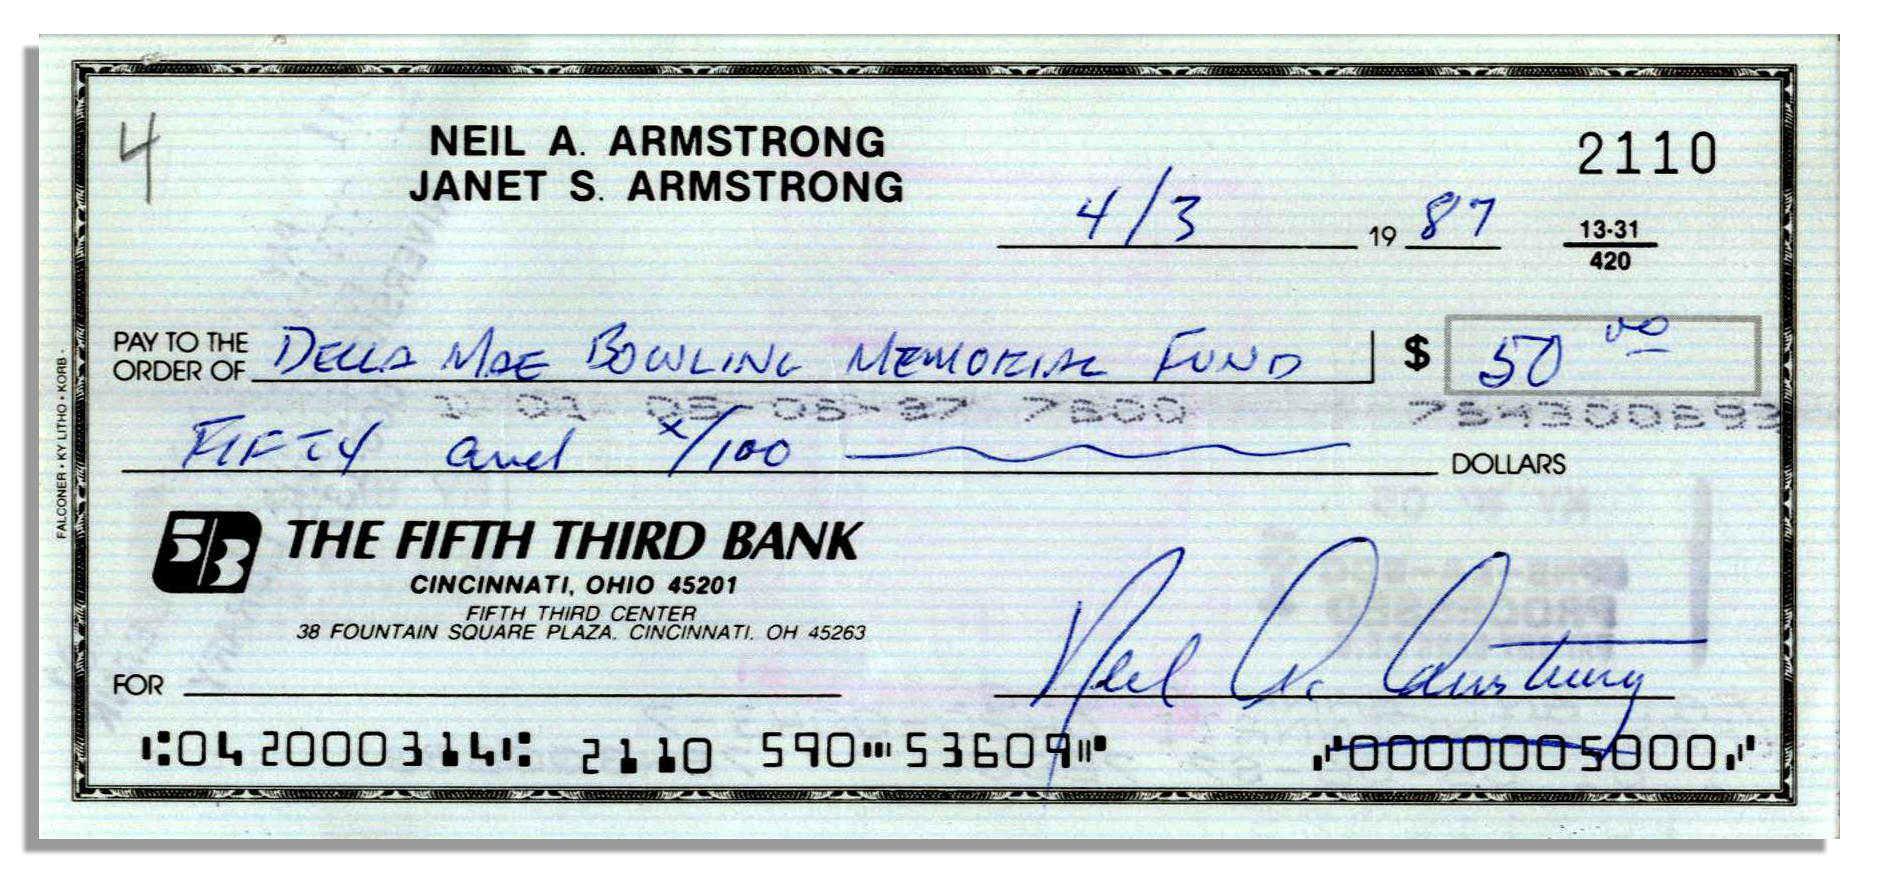 4
NEIL A. ARMSTRONG
JANET S. ARMSTRONG
2110
4/3 19 87
13-31
420
PAY TO THE
ORDER OF DELLA MAE BOWLING MEMORIAL FUND $ 50 00
05-05-87 7600
FIFTY and x/100 DOLLARS
FALCONER • KY LITHO • KORB -
53 THE FIFTH THIRD BANK
CINCINNATI, OHIO 45201
FIFTH THIRD CENTER
38 FOUNTAIN SQUARE PLAZA. CINCINNATI. OH 45263
FOR Neil A. Armstrong
⑆042000314⑆ 2110 590⑉53609⑈ ⑇0000005000⑇